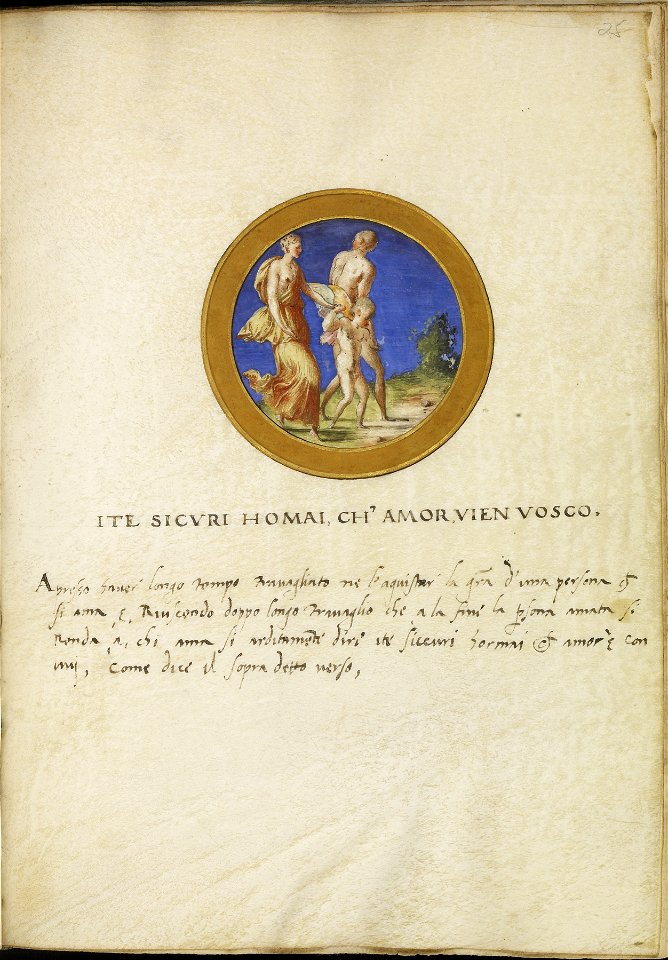 25
ITE SICVRI HOMAI, CH' AMOR, VIEN VOSCO.
Apresso haver longo tempo travagliato ne l'aquistar la gra d'una persona
si ama, e, Riuscendo doppo longo travaglio che a la fine la psona amata si
Renda, a, chi ama si arditamente dire ite siccuri hormai amor è con
voj, come dice il sopra detto verso,